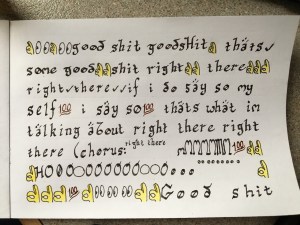 👌👀👌👀👀good shit goodsHit👌 thats✔
some good👌👌shit right👌👌there👌👌👌
right✔there✔✔if i do say so my
self💯 i say so💯 thats what im
talking about right there right
there (chorus: right there mMMMMM💯 👌👌
👌HOOOOOOOOOOOOooo °°°°°° 👌
👌👌👌💯👌👀👀👀👌👌Good shit